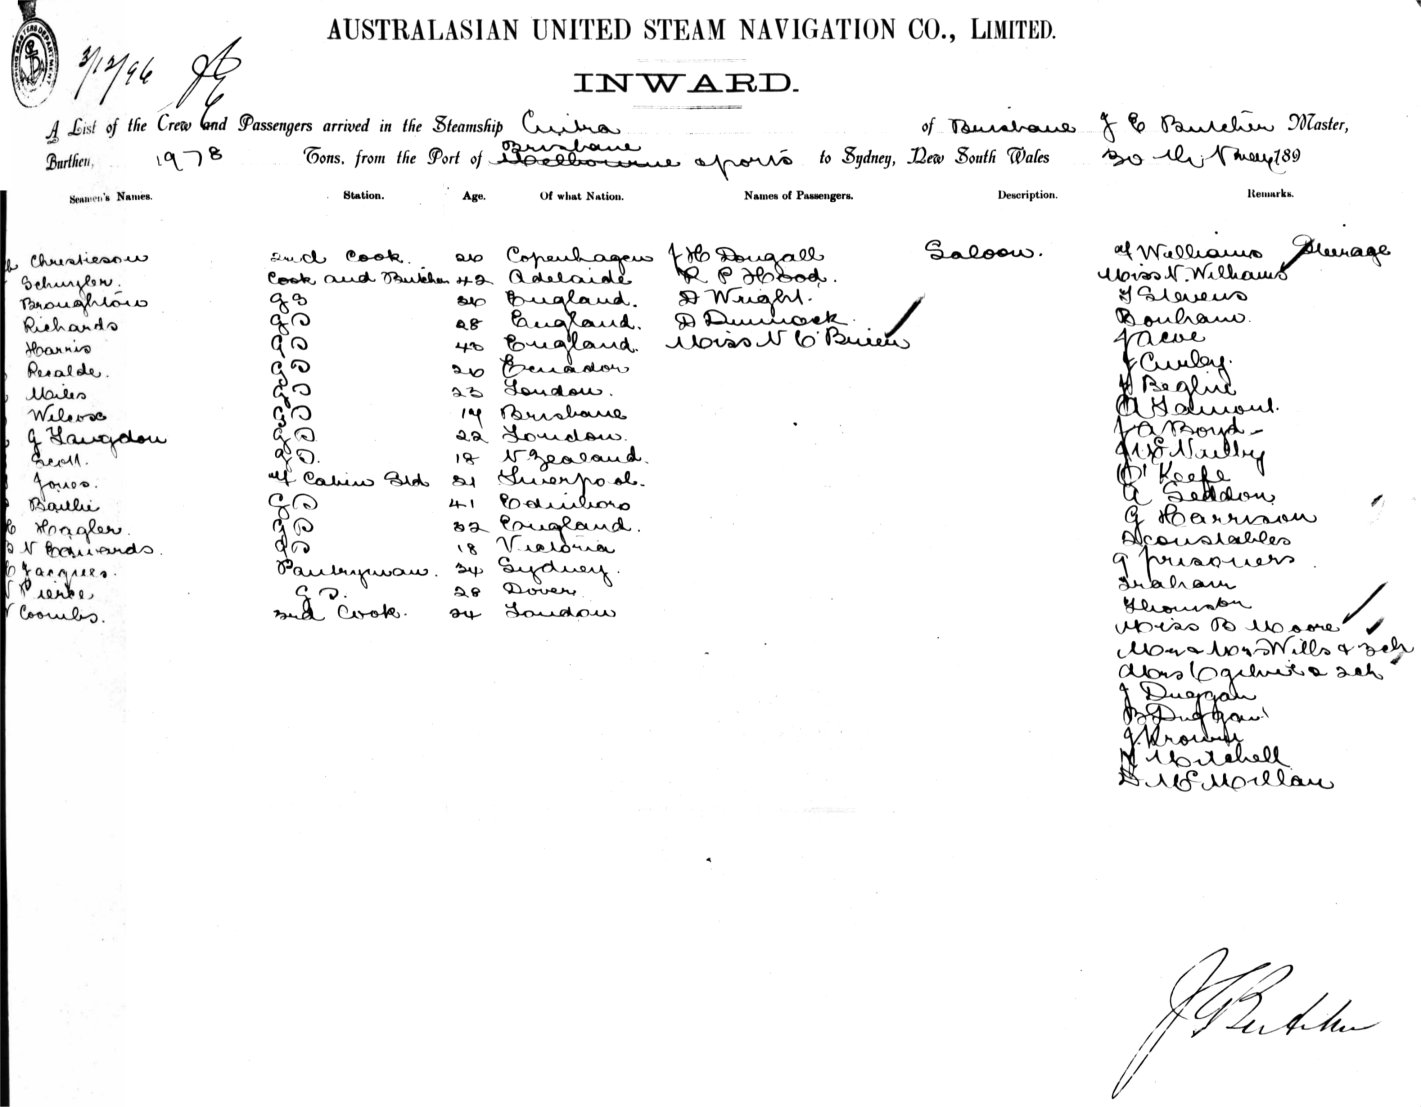 AUSTRALASIAN UNITED STEAM NAVIGATION CO., LIMITED.
3/12/96
INWARD.
A List of the Crew and Passengers arrived in the Steamship Cintra of Brisbane J E Butcher Master,
Brisbane
Burthen, 1978 Tons, from the Port of Melbourne & ports to Sydney, New South Wales 30th Novr 189
Seamen's Names. Station. Age. Of what Nation. Names of Passengers. Description. Remarks.
Christieson 2nd Cook. 26 Copenhagen J H Dougall Saloon. Williams Steerage
Cook and Butcher 42 Adelaide R P Hood. Miss N. Williams
Broughton England. D Wright. Stevens
Richards 28 England. D Dimmock. Bonham.
Harris England. Miss N O'Brien
26 Ecuador J Curley.
Miles 23 London.
Wilcox 19 Brisbane
G Langdon 22 London. J A Boyd
Scott. 18 N. Zealand.
Jones. Cabin 21 Liverpool. O'Keefe
41 Edinboro A Seddon
Hagler. 32 England. G Harrison
N Edwards. 18 Victoria constables
Jacques. Pantryman. 24 Sydney. prisoners
Pierce 28 Dover Graham
Coombs. 3rd Cook. 24 London Thomson
Miss B Moore
Mr & Mrs Wills & 3 ch
Mrs Ogilvie & 2 ch
J Duggan
B Duggan
Brown
Mitchell
D McMillan
J E Butcher